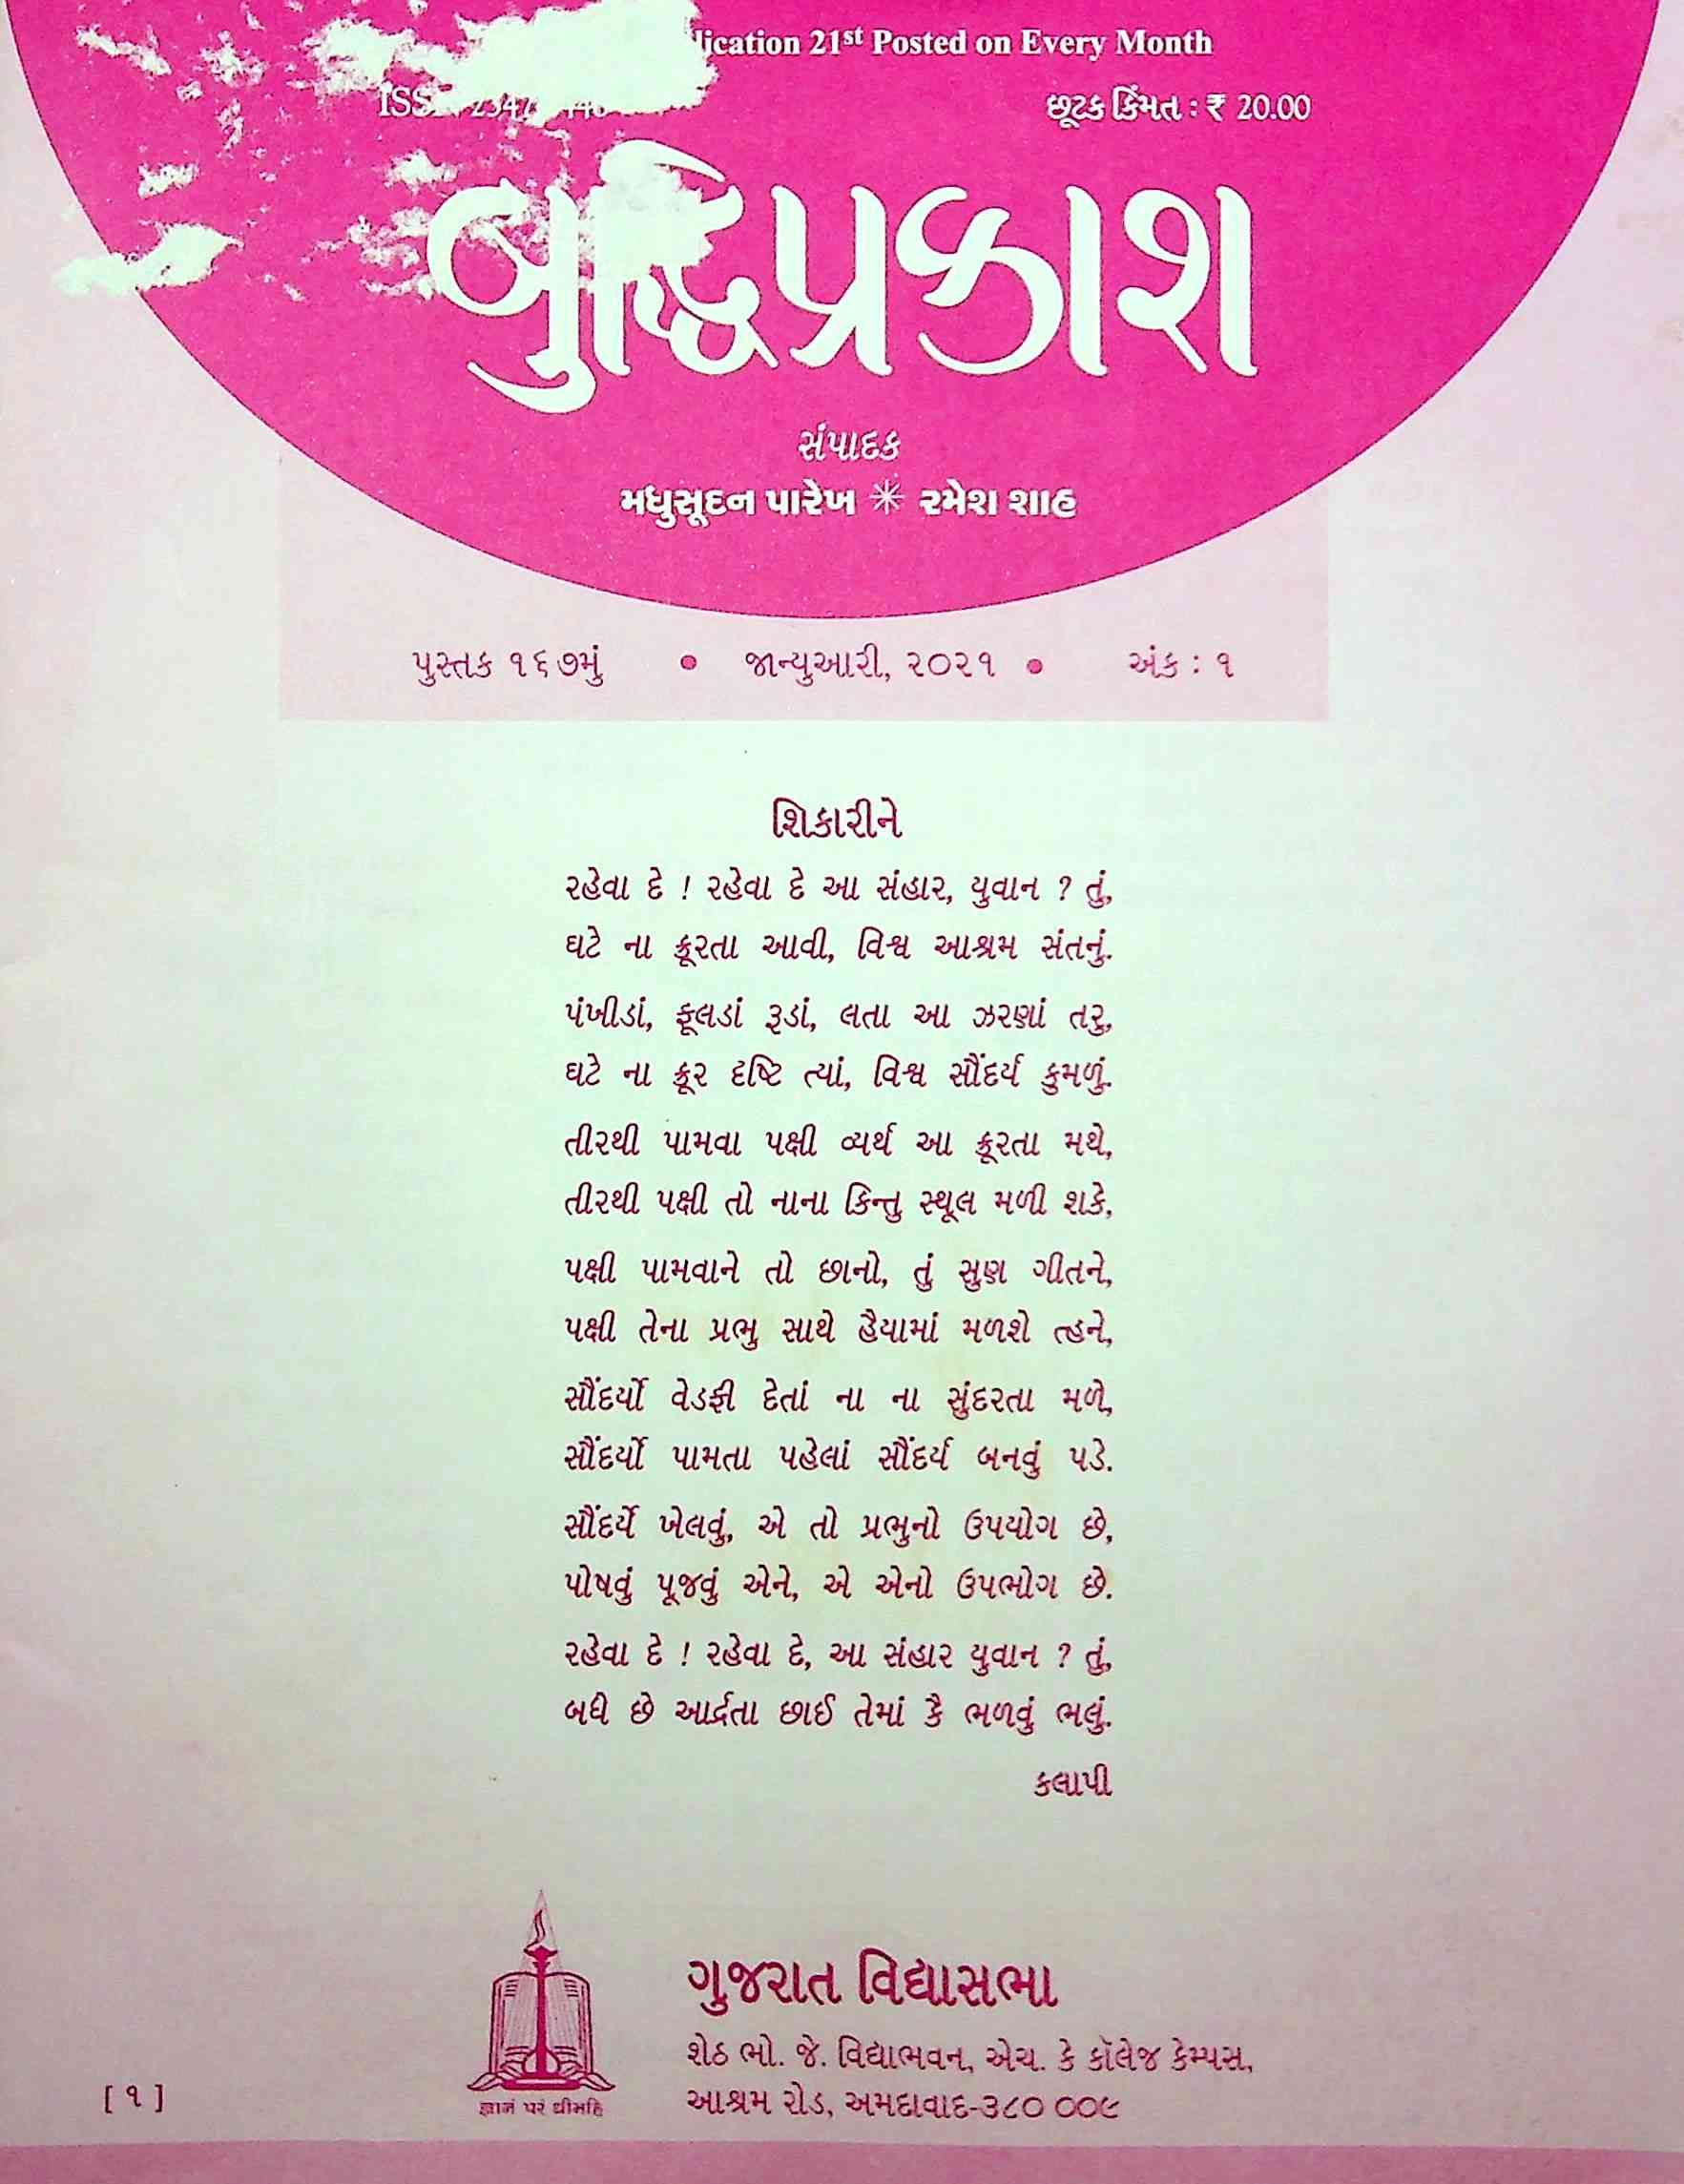 21st Posted on Every Month
છૂટક કિંમત : ₹ 20.00
બુદ્ધિપ્રકાશ
સંપાદક
મધુસૂદન પારેખ ✳ રમેશ શાહ
પુસ્તક ૧૬૭મું • જાન્યુઆરી, ૨૦૨૧ • અંક : ૧
શિકારીને
રહેવા દે ! રહેવા દે આ સંહાર, યુવાન ? તું,
ઘટે ના ક્રૂરતા આવી, વિશ્વ આશ્રમ સંતનું.
પંખીડાં, ફૂલડાં રૂડાં, લતા આ ઝરણાં તરુ,
ઘટે ના ક્રૂર દૃષ્ટિ ત્યાં, વિશ્વ સૌંદર્ય કુમળું.
તીરથી પામવા પક્ષી વ્યર્થ આ ક્રૂરતા મથે,
તીરથી પક્ષી તો નાના કિન્તુ સ્થૂલ મળી શકે,
પક્ષી પામવાને તો છાનો, તું સુણ ગીતને,
પક્ષી તેના પ્રભુ સાથે હૈયામાં મળશે ત્હને,
સૌંદર્યો વેડફી દેતાં ના ના સુંદરતા મળે,
સૌંદર્યો પામતા પહેલાં સૌંદર્ય બનવું પડે.
સૌંદર્યે ખેલવું, એ તો પ્રભુનો ઉપયોગ છે,
પોષવું પૂજવું એને, એ એનો ઉપભોગ છે.
રહેવા દે ! રહેવા દે, આ સંહાર યુવાન ? તું,
બધી છે આર્દ્રતા છાઈ તેમાં કૈ ભળવું ભલું.
કલાપી
ગુજરાત વિદ્યાસભા
શેઠ ભો. જે. વિદ્યાભવન, એચ. કે કૉલેજ કેમ્પસ,
આશ્રમ રોડ, અમદાવાદ-૩૮૦ ૦૦૯
જ્ઞાનં પરં ધીમહિ
[ ૧ ]